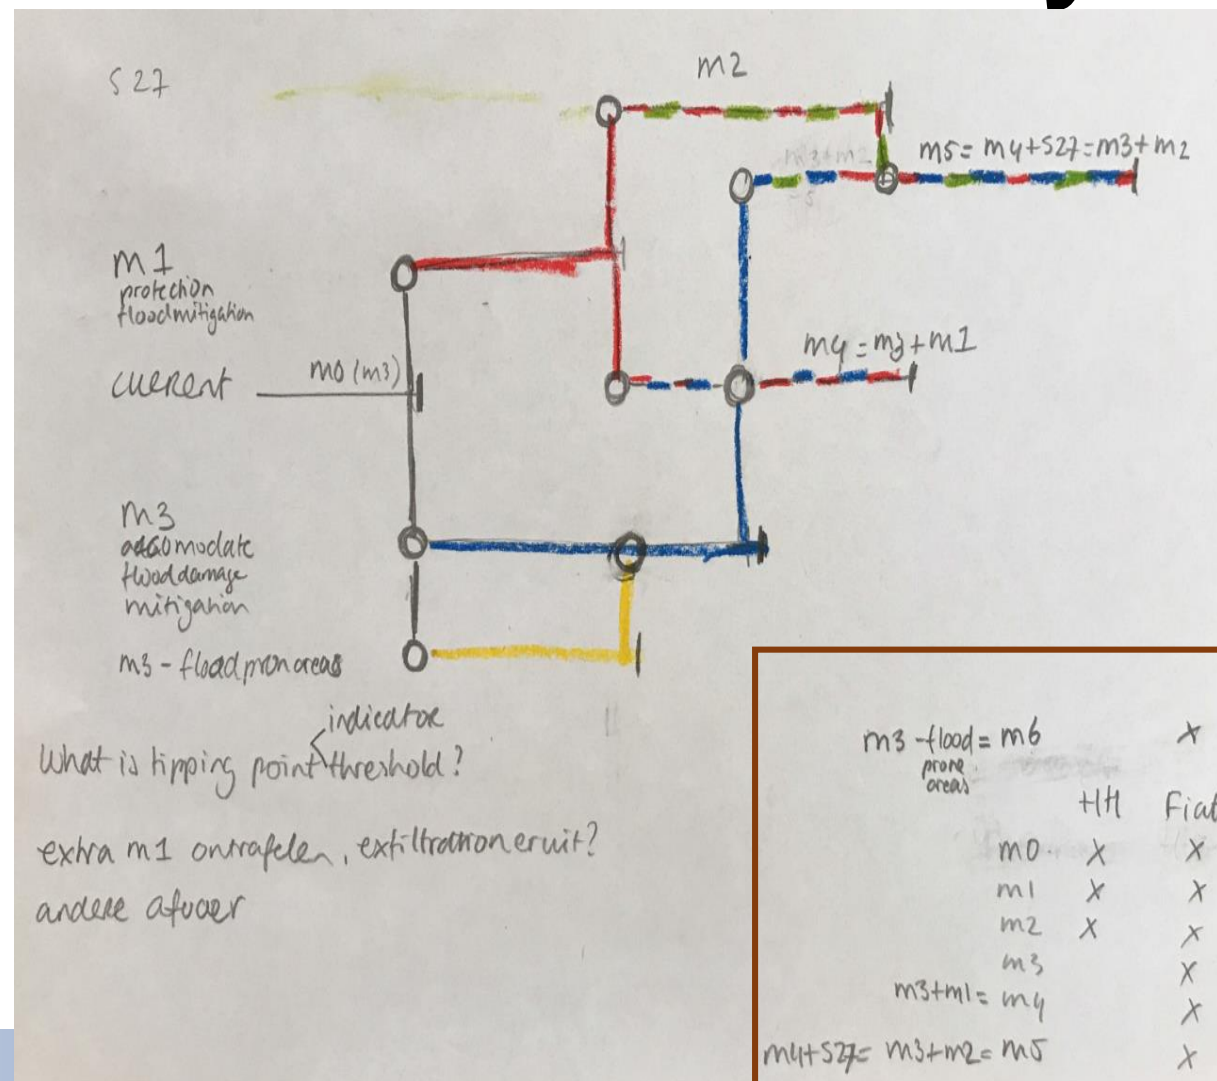 S27
m2
m3+m2
m5 = m4+S27=m3+m2
m1
protection
floodmitigation
current
m0 (m3)
m4 = m3+m1
m3
accomodate
flooddamage
mitigation
m3 - floodpronareas
indicator
What is tipping point threshold?
extra m1 ontrafelen, exfiltration eruit?
andere afvoer
m3 -flood = m6 x
prone
areas
HH Fiat
m0 x x
m1 x x
m2 x x
m3 x
m3+m1= m4 x
m4+S27= m3+m2= m5 x